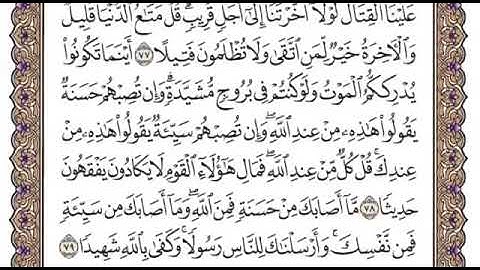 عَلَيْنَا ٱلْقِتَالَ لَوْلَآ أَخَّرْتَنَآ إِلَىٰٓ أَجَلٍ قَرِيبٍ ۗ قُلْ مَتَـٰعُ ٱلدُّنْيَا قَلِيلٌ
وَٱلْـَٔاخِرَةُ خَيْرٌ لِّمَنِ ٱتَّقَىٰ وَلَا تُظْلَمُونَ فَتِيلًا ٧٧ أَيْنَمَا تَكُونُوا۟
يُدْرِككُّمُ ٱلْمَوْتُ وَلَوْ كُنتُمْ فِى بُرُوجٍ مُّشَيَّدَةٍ ۗ وَإِن تُصِبْهُمْ حَسَنَةٌ
يَقُولُوا۟ هَـٰذِهِۦ مِنْ عِندِ ٱللَّهِ ۖ وَإِن تُصِبْهُمْ سَيِّئَةٌ يَقُولُوا۟ هَـٰذِهِۦ مِنْ
عِندِكَ ۚ قُلْ كُلٌّ مِّنْ عِندِ ٱللَّهِ ۖ فَمَالِ هَـٰٓؤُلَآءِ ٱلْقَوْمِ لَا يَكَادُونَ يَفْقَهُونَ
حَدِيثًا ٧٨ مَّآ أَصَابَكَ مِنْ حَسَنَةٍ فَمِنَ ٱللَّهِ ۖ وَمَآ أَصَابَكَ مِن سَيِّئَةٍ
فَمِن نَّفْسِكَ ۚ وَأَرْسَلْنَـٰكَ لِلنَّاسِ رَسُولًا ۚ وَكَفَىٰ بِٱللَّهِ شَهِيدًا ٧٩